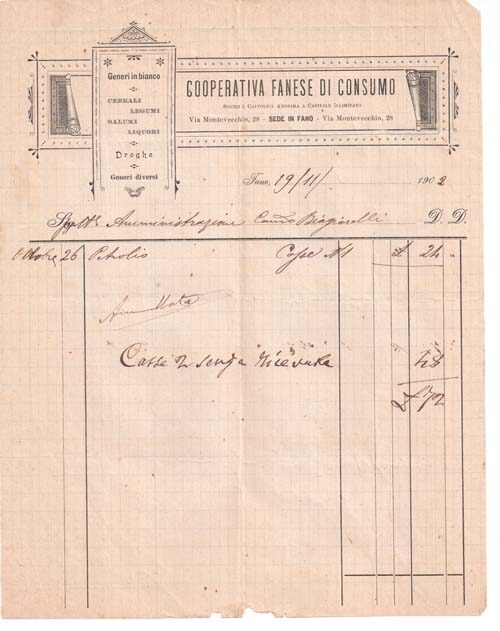 Generi in bianco
CEREALI
LEGUMI
SALUMI
LIQUORI
Droghe
Generi diversi
COOPERATIVA FANESE DI CONSUMO
Società Cattolica Anonima a Capitale Illimitato
Via Montevecchio, 28 - SEDE IN FANO - Via Montevecchio, 28
Fano, 19/11/ 1902
Amministrazione D. D.
Ottobre 26 Petrolio Casse N1 £ 24 "
Casse 2 senza ricevuta 48
£ 72